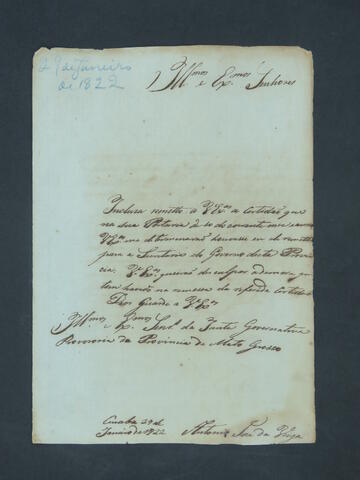 29 de Janeiro
de 1822
Ill.mos e Ex.mos Senhores
Incluza remetto a V.Ex.as a Certidão que
na sua Portaria de 10 do corrente mez
V.Ex.as me determinarão houvesse eu de remetter
para a Secretaria do Governo desta Provin
cia. V.Ex.as queirão desculpar a demora que
tem havido na remessa da referida Certidão
Deos Guarde a V.Ex.as
Ill.mos e Ex.mos Senr.es da Junta Governativa
Provizoria da Provincia de Mato Grosso
Cuiabá 29 de
Janeiro de 1822
Antonio José da Veiga